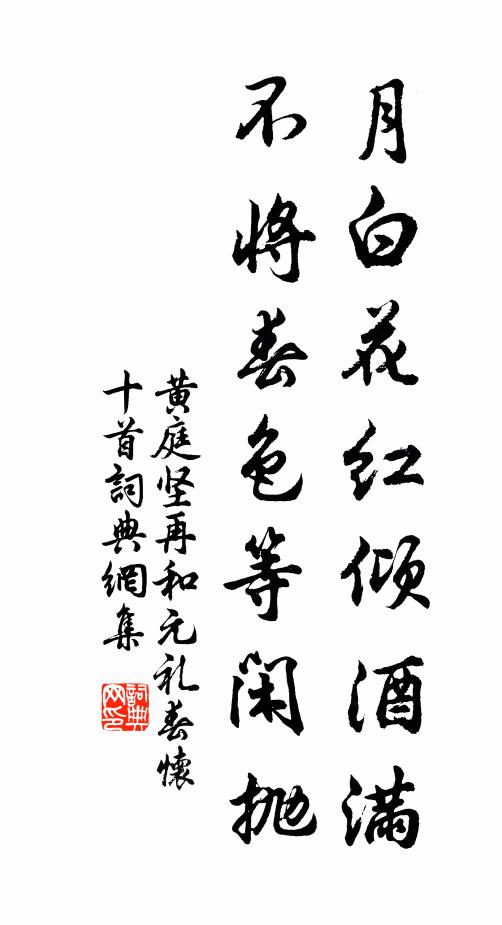 月白花红倾酒满
不将春色等闲抛
黄庭坚再和元礼春怀
十首詞典網集
詞典网印